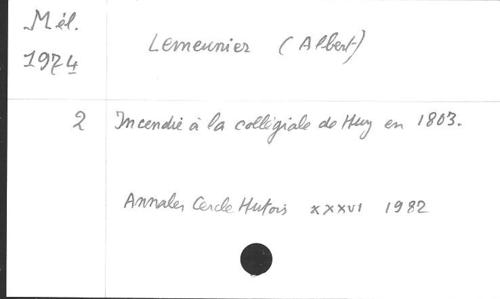 Mél.
1974
Lemeunier (Albert)
2 Incendie à la collégiale de Huy en 1803.
Annales Cercle Hutois XXXVI 1982